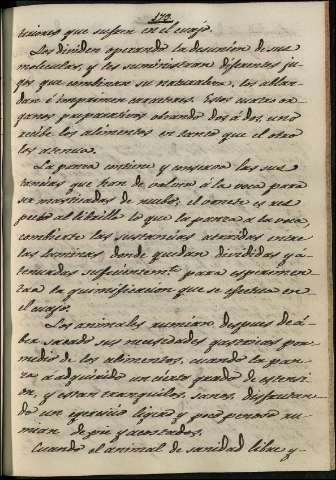 172
taciones que sufren en el cuajo.
Los dividen operando la desunion de sus
moleculas, y les suministran diferentes ju-
gos que combinan su naturaleza, los ablan-
dan é imprimen caracteres. Estos cuatro or-
ganos preparativos obrando dos á dos, uno
recibe los alimentos en tanto que el otro
los atenua.
La panza contiene y conserva las sus
tancias que han de volver á la boca para
ser masticadas de nuebo; el bonete es res
pecto al librillo lo que la panza á la boca,
combierte las sustancias atraidas entre
las laminas, donde quedan divididas y a-
tenuadas suficientemte. para esperimen-
tar la quimificacion que se efectua en
el cuajo.
Los animales rumian despues de á-
ber saciado sus necesidades gastricas por
medio de los alimentos, cuando la pan-
za á adquirido un cierto grado de estensi-
on, y estan tranquilos, sanos, disfrutan-
do un egercicio ligero y poco penoso ru-
mian de pie y acostados.
Cuando el animal de sanidad libre y-